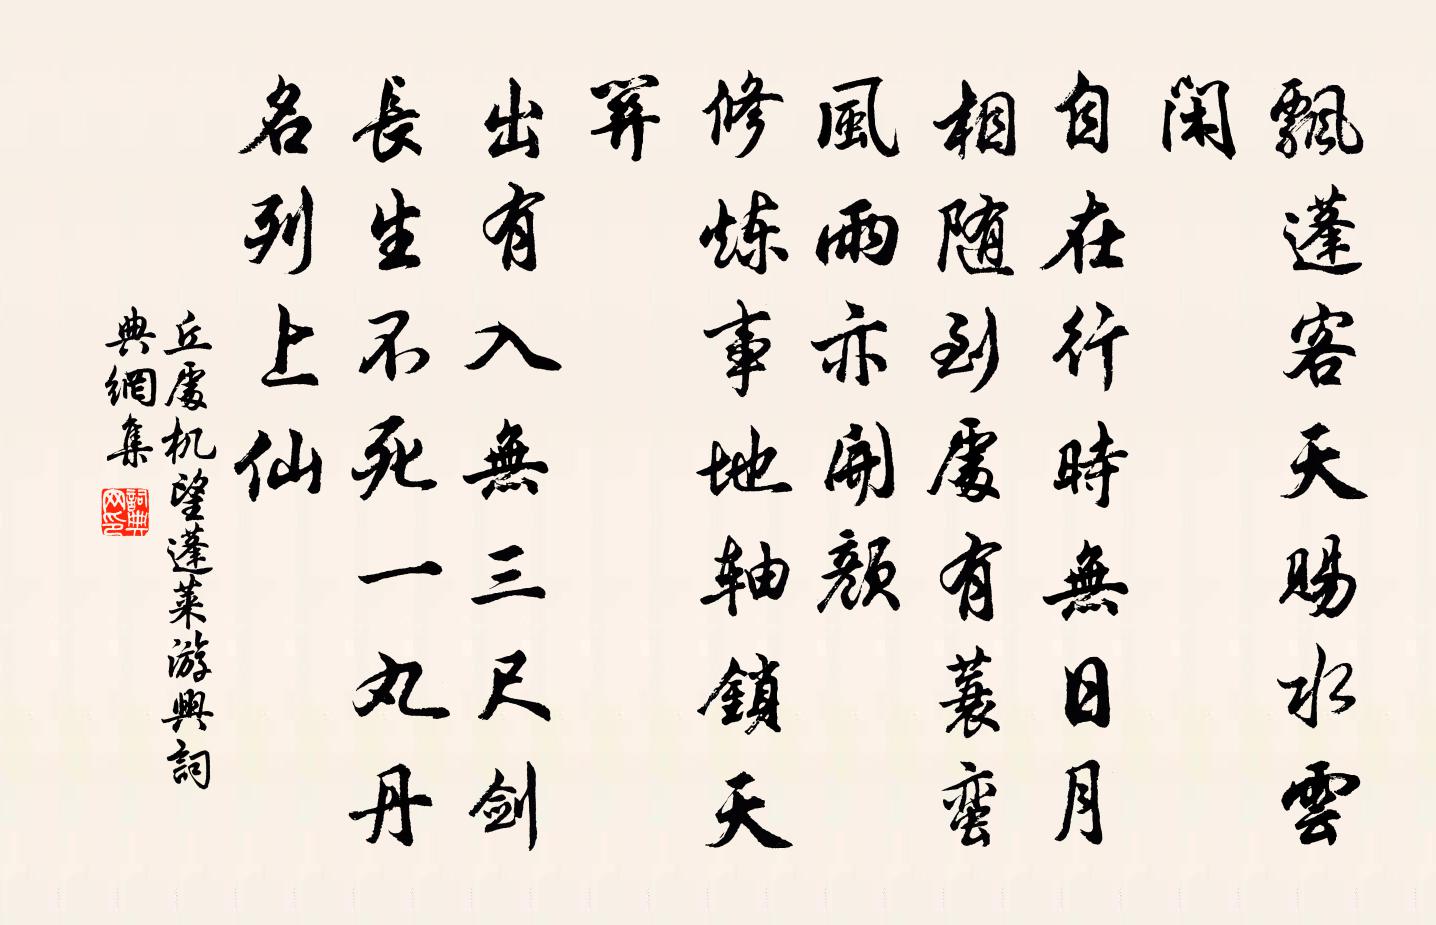 飄蓬客天賜水雲
闲
自在行時無日月
相随到處有蓑蛮
風雨亦開顏
修炼事地轴鎖天
關
出有入無三尺剑
長生不死一丸丹
名列上仙
丘處机望蓬莱游興詞
典網集
詞典
网印